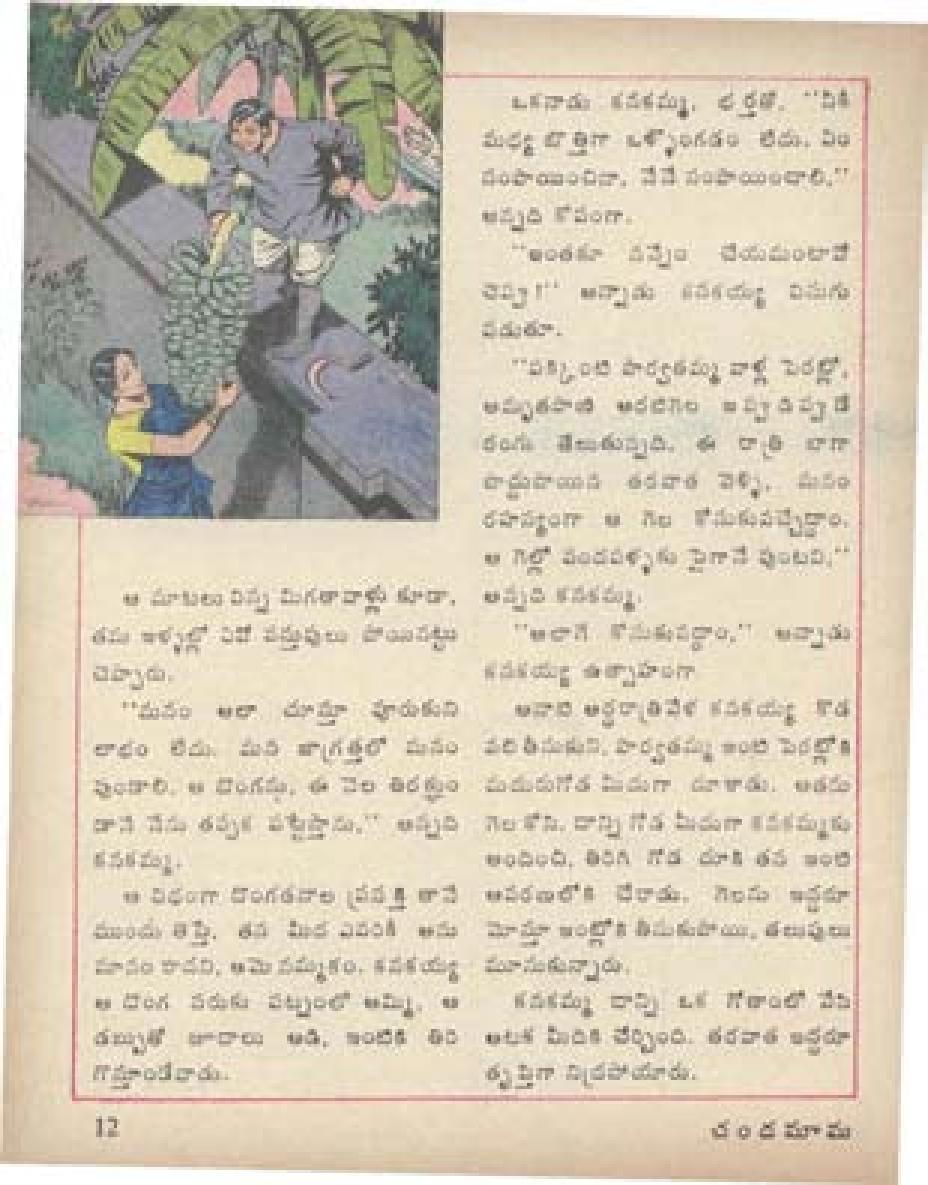 ఆ మాటలు విన్న మిగతావాళ్లు కూడా,
తమ ఇళ్ళల్లో ఏవో వస్తువులు పోయినట్టు
చెప్పారు.
"మనం అలా చూస్తూ వూరుకుని
లాభం లేదు. మన జాగ్రత్తలో మనం
వుండాలి. ఆ దొంగను, ఈ నెల తిరక్కుం
డానే నేను తప్పక పట్టేస్తాను," అన్నది
కనకమ్మ.
ఆ విధంగా దొంగతనాల ప్రసక్తి తానే
ముందు తెస్తే, తన మీద ఎవరికీ అను
మానం రాదని, ఆమె నమ్మకం. కనకయ్య
ఆ దొంగ సరుకు పట్నంలో అమ్మి, ఆ
డబ్బుతో జూదాలు ఆడి, ఇంటికి తిరి
గొస్తూండేవాడు.
ఒకనాడు కనకమ్మ, భర్తతో, "నీకీ
మధ్య బొత్తిగా ఒళ్ళొంగడం లేదు. ఏం
సంపాయించినా, నేనే సంపాయించాలి,"
అన్నది కోపంగా.
"అంతకూ నన్నేం చేయమంటావో
చెప్పు!" అన్నాడు కనకయ్య విసుగు
పడుతూ.
"పక్కింటి పార్వతమ్మ వాళ్ల పెరట్లో,
అమృతపాణి అరటిగెల ఇప్పుడిప్పుడే
రంగు తేలుతున్నది. ఈ రాత్రి బాగా
పొద్దుపోయిన తరవాత వెళ్ళి, మనం
రహస్యంగా ఆ గెల కోసుకువచ్చేద్దాం.
ఆ గెల్లో వందపళ్ళకు పైగానే వుంటవి,"
అన్నది కనకమ్మ.
"అలాగే కోసుకువద్దాం," అన్నాడు
కనకయ్య ఉత్సాహంగా
ఆనాటి అర్ధరాత్రివేళ కనకయ్య కొడ
వలి తీసుకుని, పార్వతమ్మ ఇంటి పెరట్లోకి
మదురుగోడ మీదుగా దూకాడు. అతను
గెల కోసి, దాన్ని గోడ మీదుగా కనకమ్మకు
అందించి, తిరిగి గోడ దూకి తన ఇంటి
ఆవరణలోకి చేరాడు. గెలను ఇద్దరూ
మోస్తూ ఇంట్లోకి తీసుకుపోయి, తలుపులు
మూసుకున్నారు.
కనకమ్మ దాన్ని ఒక గోతాంలో వేసి
అటక మీదికి చేర్చింది. తరవాత ఇద్దరూ
తృప్తిగా నిద్రపోయారు.
12
చందమామ